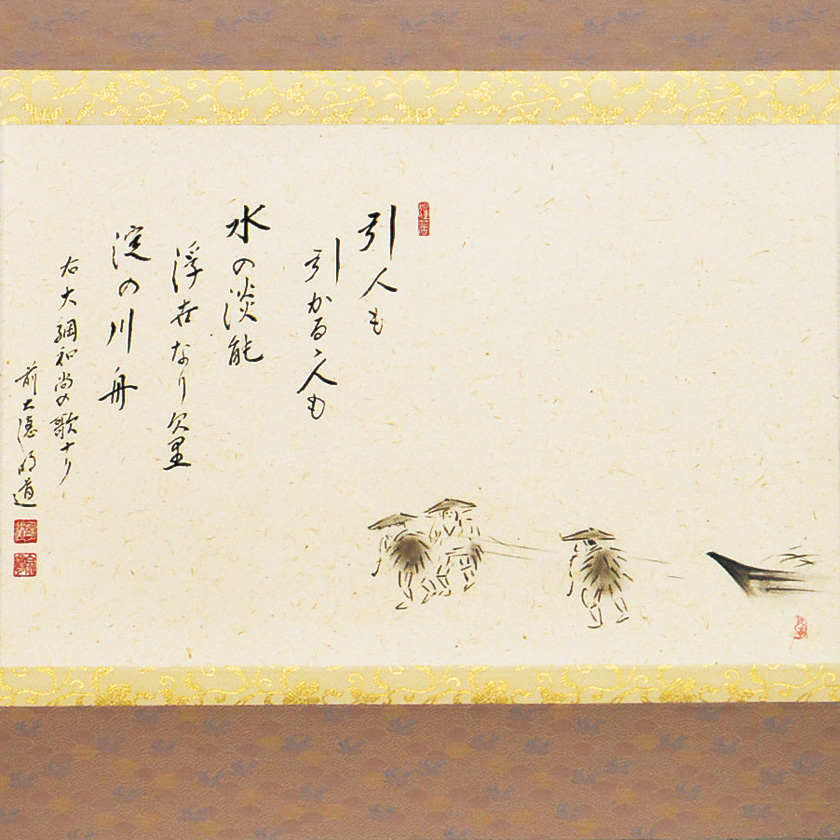 引人も
引かるゝ人も
水の淡能
浮世なり欠里
淀の川舟
右大綱和尚の歌ナリ
前大徳明道